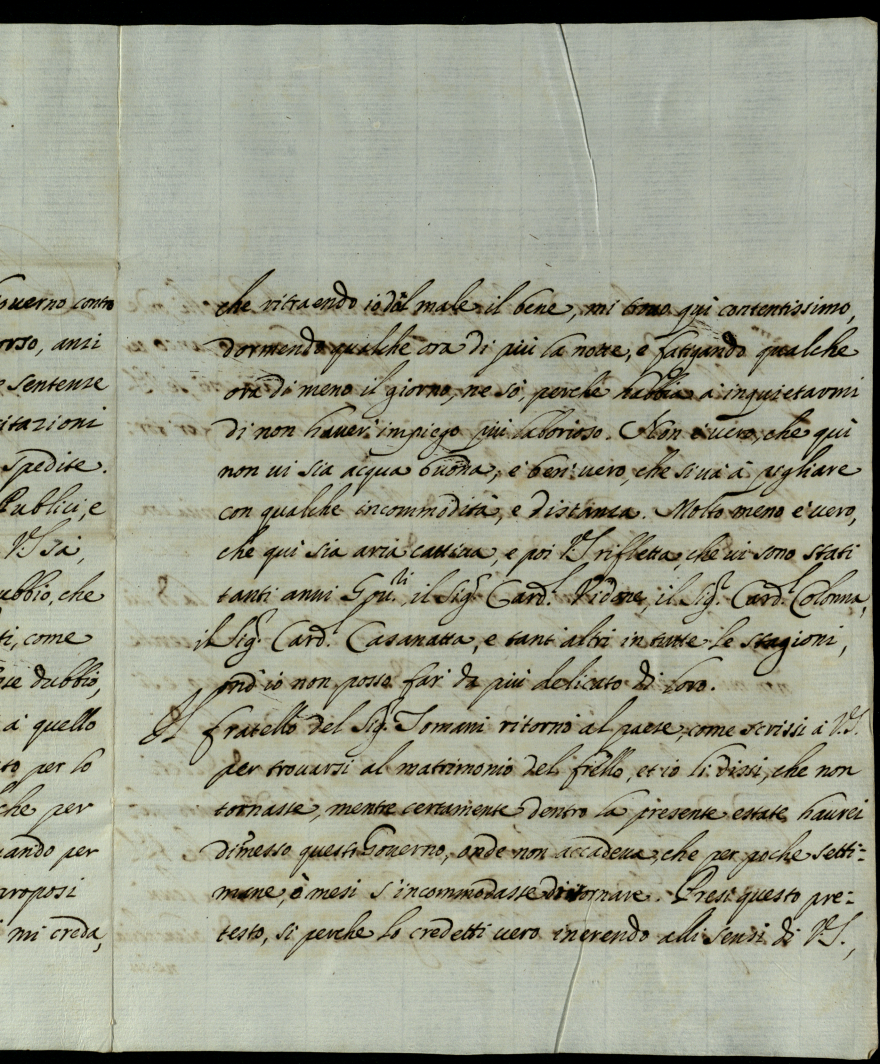 overno conto
orso, anzi
e sentenze
itazioni
spedite.
Publici, e
V.S. sà,
ubbio, che
ti, come
se dubbio,
a quello
to per lo
che per
uando per
proposi
mi creda,
che ritraendo io dal male il bene, mi trovo qui contentissimo,
dormendo qualche ora di più la notte, e fatigando qualche
ora di meno il giorno, ne sò, perche habbia à inquietarmi
di non haver' impiego più laborioso. Non è vero, che qui
non vi sia acqua buona, è ben vero, che si và à pigliare
con qualche incommodità, e distanza. Molto meno è vero,
che qui sia aria cattiva, e poi V.S. rifletta, che vi sono stati
tanti anni Gov.ri, il Sig.r Card.l Vidone, il Sig.r Card.l Colonna,
il Sig.r Card.l Casanatta, e tant'altri in tutte le stagioni,
ond'io non posso far da più delicato di loro.
Il fratello del Sig.r Tomani ritornò al paese, come scrissi à V.S.
per trovarsi al matrimonio del frello, et io li dissi, che non
tornasse, mentre certamente dentro la presente estate haurei
dimesso questo Governo, onde non accadeva, che per poche setti=
mane, ò mesi s'incommodasse di ritornare. Presi questo pre=
testo, si perche lo credetti vero inerendo alli sensi di V.S.,